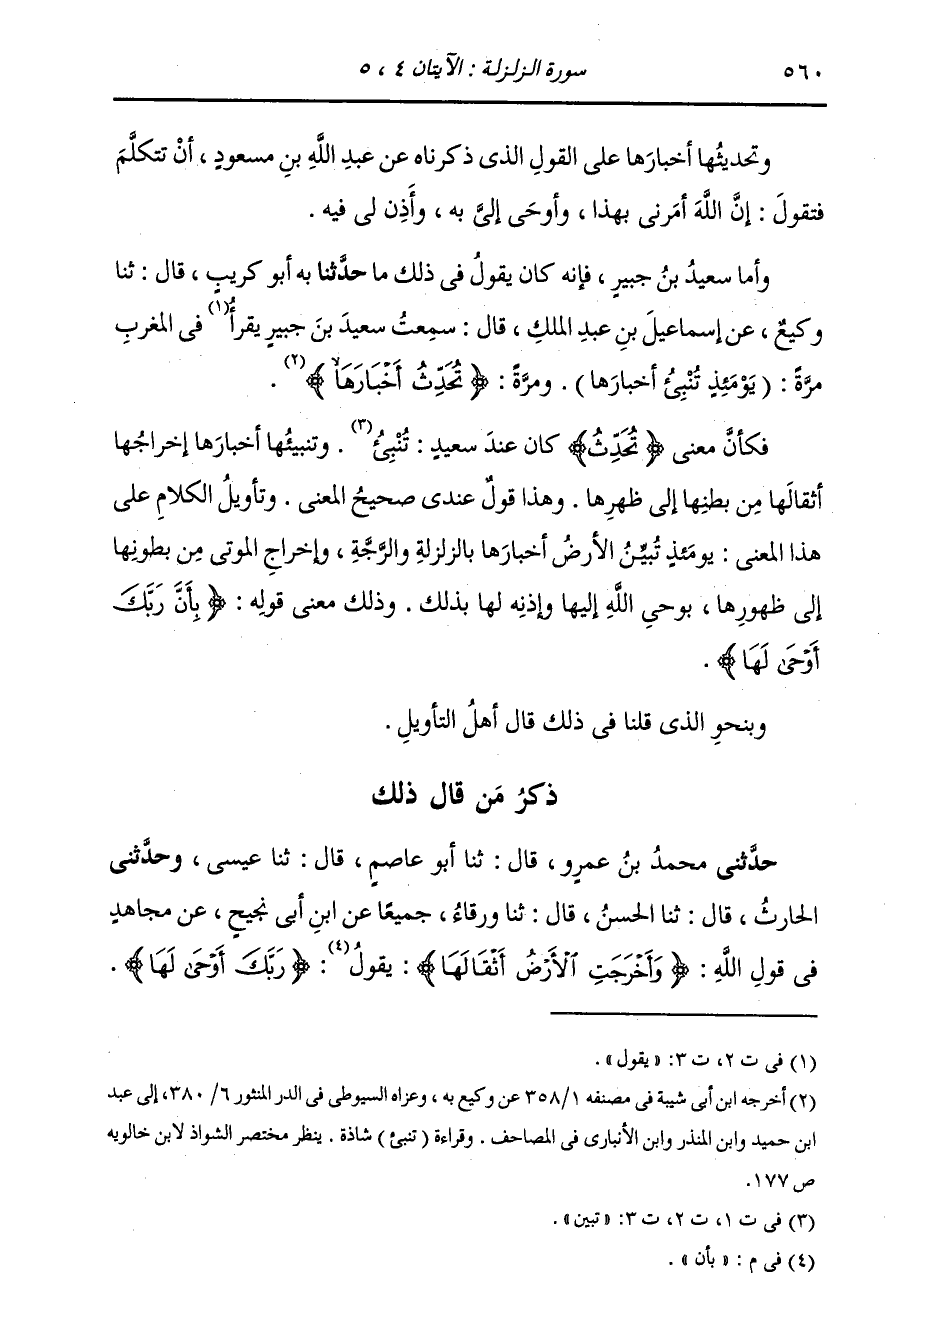 ٥٦٠
سورة الزلزلة : الآيتان ٤ ، ٥
وتحديثُها أخبارَها على القولِ الذى ذكرناه عن عبدِ اللَّهِ بنِ مسعودٍ ، أنْ تتكلَّمَ
فتقولَ : إنَّ اللَّهَ أمَرنى بهذا ، وأوحَى إلىَّ به ، وأَذِن لى فيه .
وأما سعيدُ بنُ جبيرٍ ، فإنه كان يقولُ فى ذلك ما حدَّثنا به أبو كريبٍ ، قال : ثنا
وكيعٌ ، عن إسماعيلَ بنِ عبدِ الملكِ ، قال : سمِعتُ سعيدَ بنَ جبيرٍ يقرأُ(١) فى المغربِ
مرَّةً : ( يَوْمَئِذٍ تُنْبِئُ أخبارَها ) . ومرَّةً : ﴿ تُحَدِّثُ أَخْبَارَهَا ﴾(٢) .
فكأنَّ معنى ﴿ تُحَدِّثُ ﴾ كان عندَ سعيدٍ : تُنْبِئُ(٣) . وتنبيئُها أخبارَها إخراجُها
أثقالَها مِن بطنِها إلى ظهرِها . وهذا قولٌ عندى صحيحُ المعنى . وتأويلُ الكلامِ على
هذا المعنى : يومَئذٍ تُبيِّنُ الأرضُ أخبارَها بالزلزلةِ والرَّجَّةِ ، وإخراجِ الموتى مِن بطونِها
إلى ظهورِها ، بوحىِ اللَّهِ إليها وإذنِه لها بذلك . وذلك معنى قولِه : ﴿ بِأَنَّ رَبَّكَ
أَوْحَىٰ لَهَا ﴾ .
وبنحوِ الذى قلنا فى ذلك قال أهلُ التأويلِ .
ذكرُ مَن قال ذلك
حدَّثنى محمدُ بنُ عمرٍو ، قال : ثنا أبو عاصمٍ ، قال : ثنا عيسى ، وحدَّثنى
الحارثُ ، قال : ثنا الحسنُ ، قال : ثنا ورقاءُ ، جميعًا عن ابنِ أبى نجيحٍ ، عن مجاهدٍ
فى قولِ اللَّهِ : ﴿ وَأَخْرَجَتِ ٱلْأَرْضُ أَثْقَالَهَا ﴾ : يقولُ(٤) : ﴿ رَبَّكَ أَوْحَىٰ لَهَا ﴾ .
(١) فى ت ٢، ت ٣: « يقول » .
(٢) أخرجه ابن أبى شيبة فى مصنفه ٣٥٨/١ عن وكيع به ، وعزاه السيوطى فى الدر المنثور ٣٨٠/٦، إلى عبد
ابن حميد وابن المنذر وابن الأنبارى فى المصاحف . وقراءة ( تنبئ ) شاذة . ينظر مختصر الشواذ لابن خالويه
ص ١٧٧.
(٣) فى ت ١، ت ٢، ت ٣: « تبين » .
(٤) فى م : « بأن » .